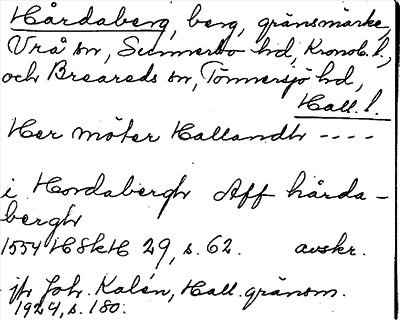 Hårdaberg, berg, gränsmärke,
Vrå sn, Sunnerbo hd, Kronob. l.,
och Breareds sn, Tönnersjö hd,
Hall. l.
Her möter Hallandh ----
i Hordabergh Aff hårda-
bergh
1554 HSkH 29, s. 62. avskr.
jfr Joh. Kalén, Hall. gränsm.
1924, s. 180.